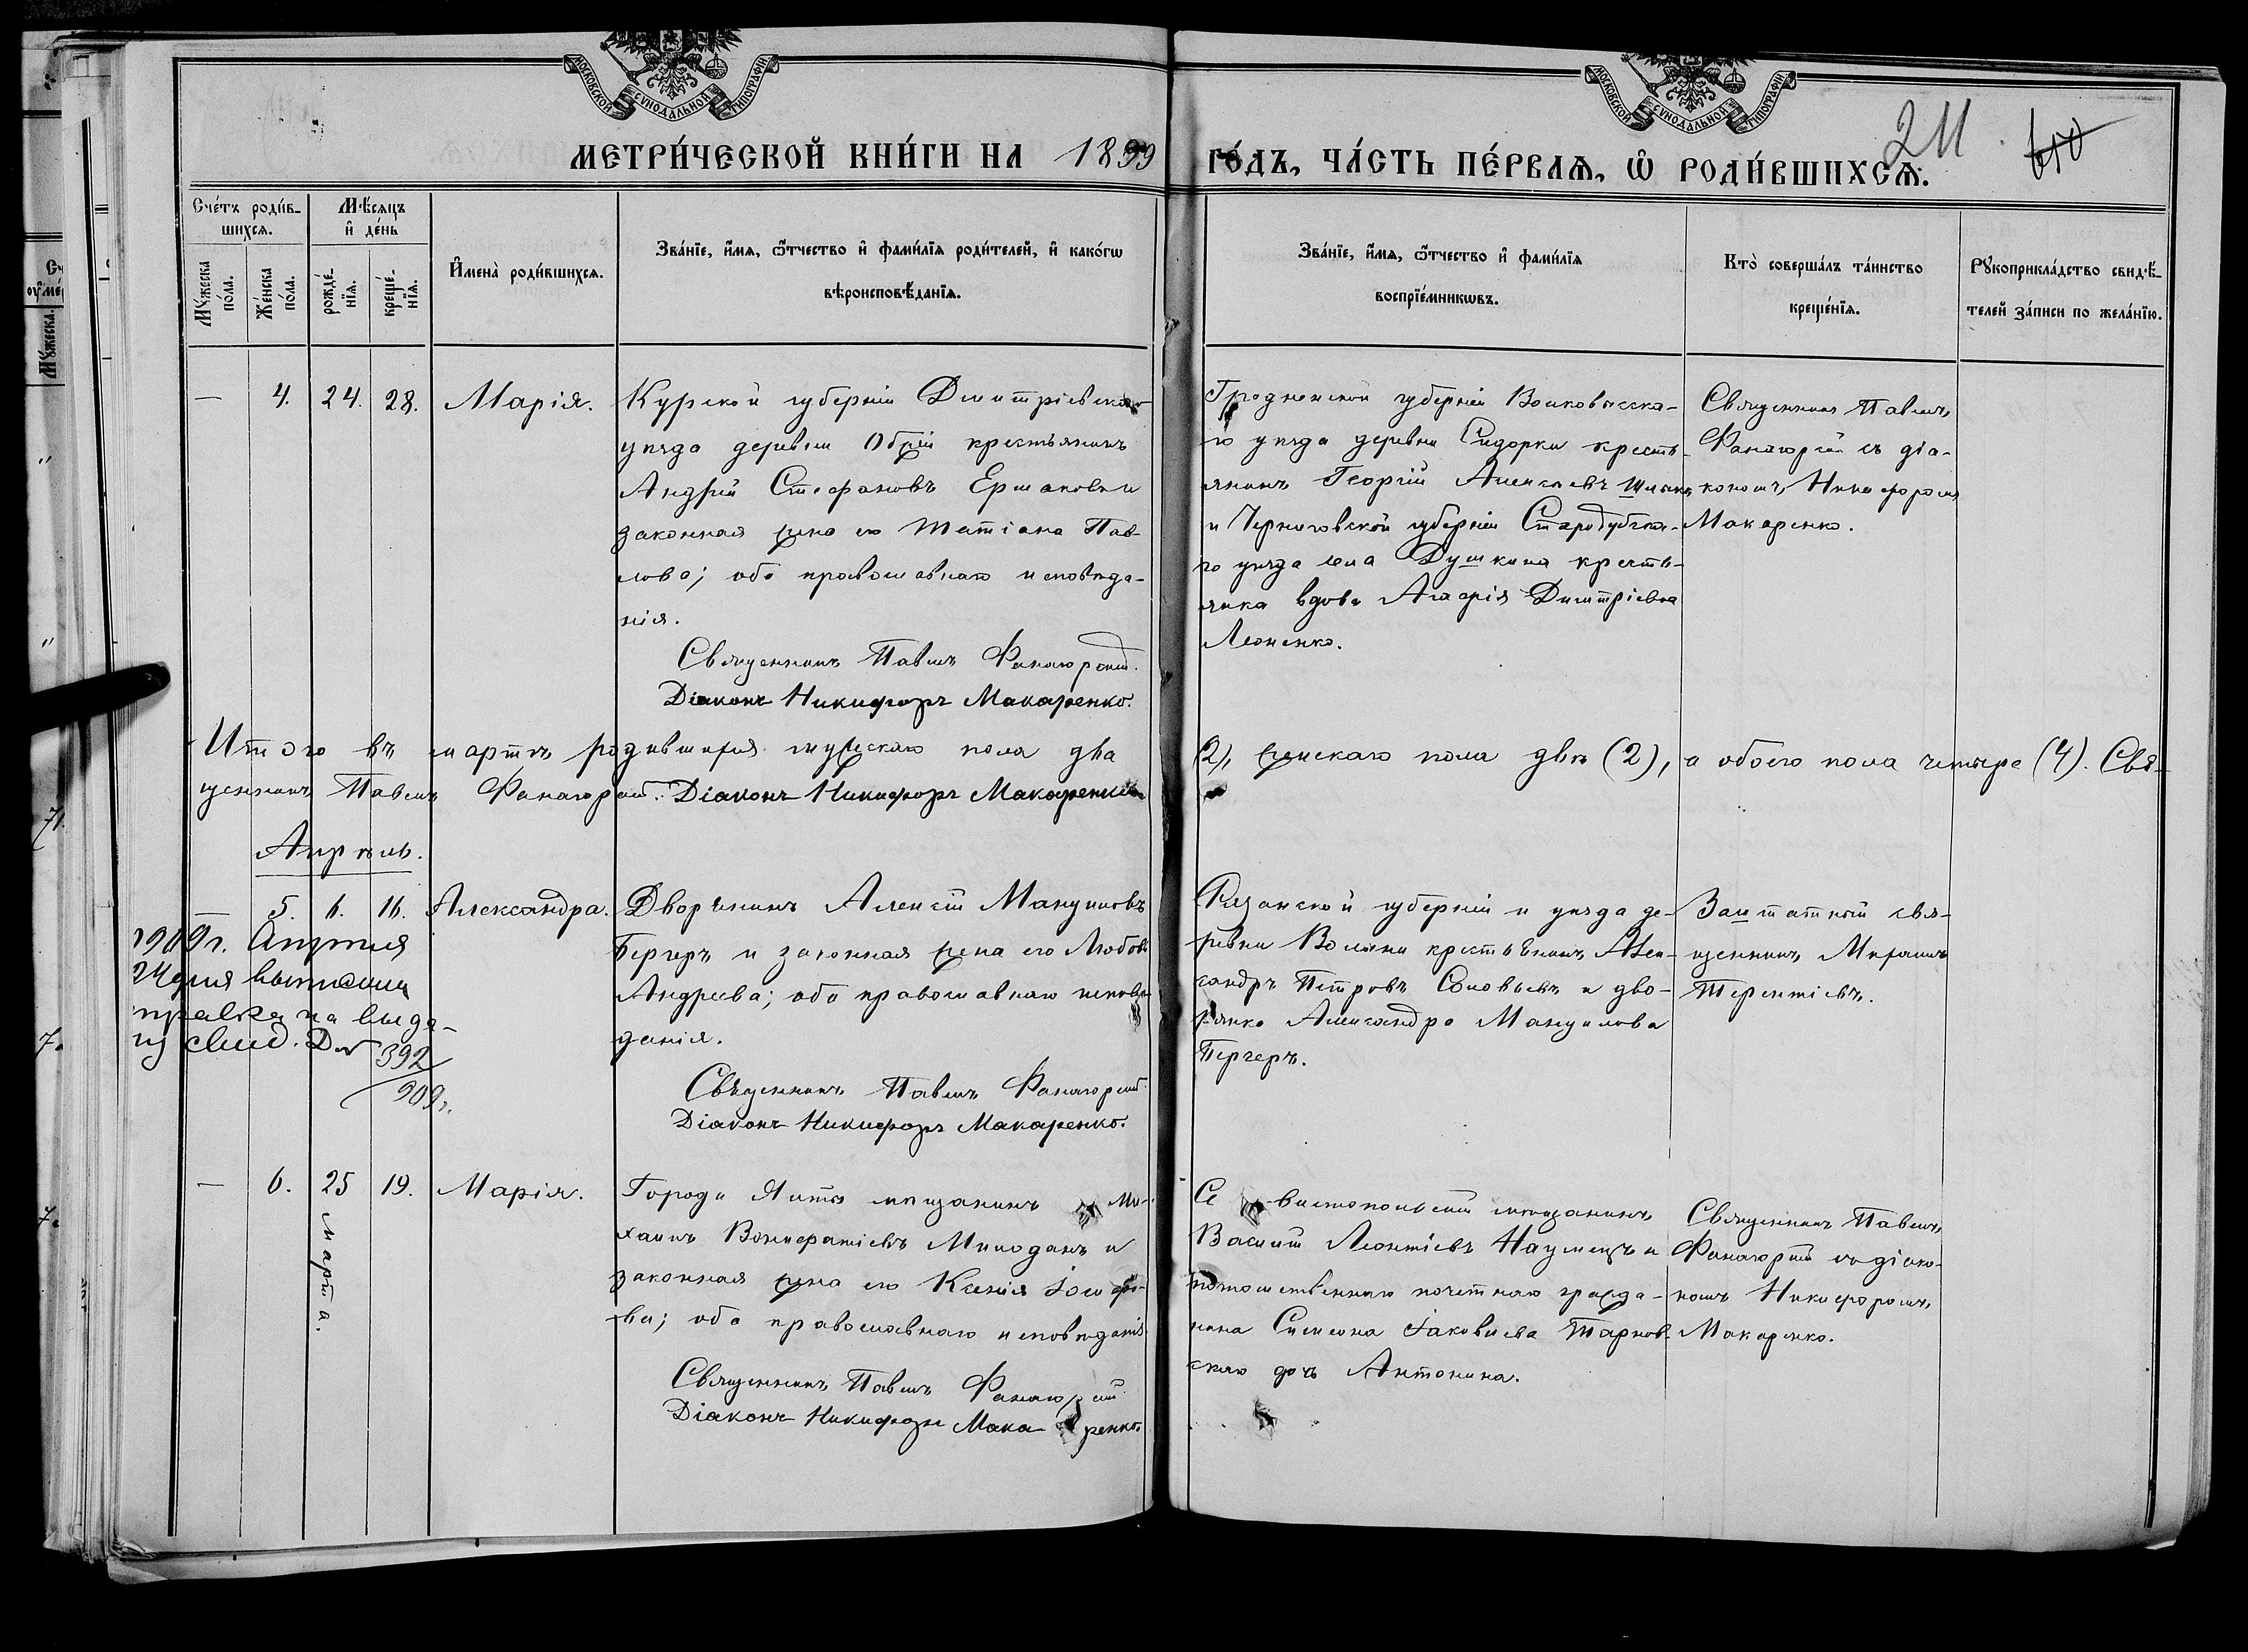 МОСКОВСКОЙ СУНОДАЛЬНОЙ ТИПОГРАФІИ
МОСКОВСКОЙ СУНОДАЛЬНОЙ ТИПОГРАФІИ
МЕТРИ́ЧЕСКОЙ КНИ́ГИ НА 1899 ГО́ДЪ, ЧА́СТЬ ПЕ́РВАѦ, Ѡ РОДИ́ВШИХСѦ.
211
610
Сче́тъ роди́в-
шихсѧ.
Мѣ́сѧцъ
и҆ де́нь
Мꙋ́жеска
по́ла.
Же́нска
по́ла.
рожде́-
нїѧ.
креще́-
нїѧ.
И҆мена̀ роди́вшихсѧ.
Зва́нїе, и҆́мѧ, ѻ҆́тчество и҆ фами́лїѧ роди́телей, и҆ како́гѡ
вѣроисповѣ́данїѧ.
Зва́нїе, и҆́мѧ, ѻ҆́тчество и҆ фами́лїѧ
воспрїе́мникѡвъ.
Кто̀ соверша́лъ та́инство
креще́нїѧ.
Рꙋкоприкла́дство свидѣ́-
телей за́писи по жела́нїю.
— 4. 24. 28. Марія.
Курской губерніи Дмитріевскаго
уѣзда деревни крестьянинъ
Андрей Стефановъ Ермаковъ и
законная жена его Татіана Пав-
лова; оба православнаго исповѣда-
нія.
Священникъ Павелъ Фанагорскій.
Діаконъ Никифоръ Макаренко.
Гродненской губерніи Волковысска-
го уѣзда деревни Сидорки кресть-
янинъ Георгій Алексѣевъ
и Черниговской губерніи Стародубска-
го уѣзда села Душкина кресть-
янка вдова Агафія Димитріевна
Леоненко.
Священникъ Павелъ
Фанагорскій съ діа-
кономъ Никифоромъ
Макаренко.
Итого въ мартѣ родившихся мужскаго пола два (2), женскаго пола двѣ (2), а обоего пола четыре (4). Свя-
щенникъ Павелъ Фанагорскій. Діаконъ Никифоръ Макаренко
Апрѣль.
— 5. 6. 16. Александра.
1909 г. Апрѣля
дня выписана
правка на выда-
чу свид. Д №
392
909 г.
Дворянинъ Алексѣй Мануиловъ
Бергеръ и законная жена его Любовь
Андреева; оба православнаго исповѣ-
данія.
Священникъ Павелъ Фанагорскій.
Діаконъ Никифоръ Макаренко.
Рязанской губерніи и уѣзда де-
ревни Волыни крестьянинъ Алек-
сандръ Петровъ Соловьевъ и дво-
рянка Александра Мануилова
Бергеръ.
Заштатный свя-
щенникъ
Терентіевъ.
— 6. 25 марта. 19. Марія.
Города Ялты мѣщанинъ Ми-
хаилъ Вонифатіевъ Милоданъ и
законная жена его Ксенія Іосифо-
ва; оба православнаго исповѣданія.
Священникъ Павелъ Фанагорскій
Діаконъ Никифоръ Макаренко.
Севастопольскій мѣщанинъ
Василій Леонтіевъ и
потомственнаго почетнаго гражда-
нина Симеона Іаковлева Тарнов-
скаго дочь Антонина.
Священникъ Павелъ
Фанагорскій съ діако-
номъ Никифоромъ
Макаренко.